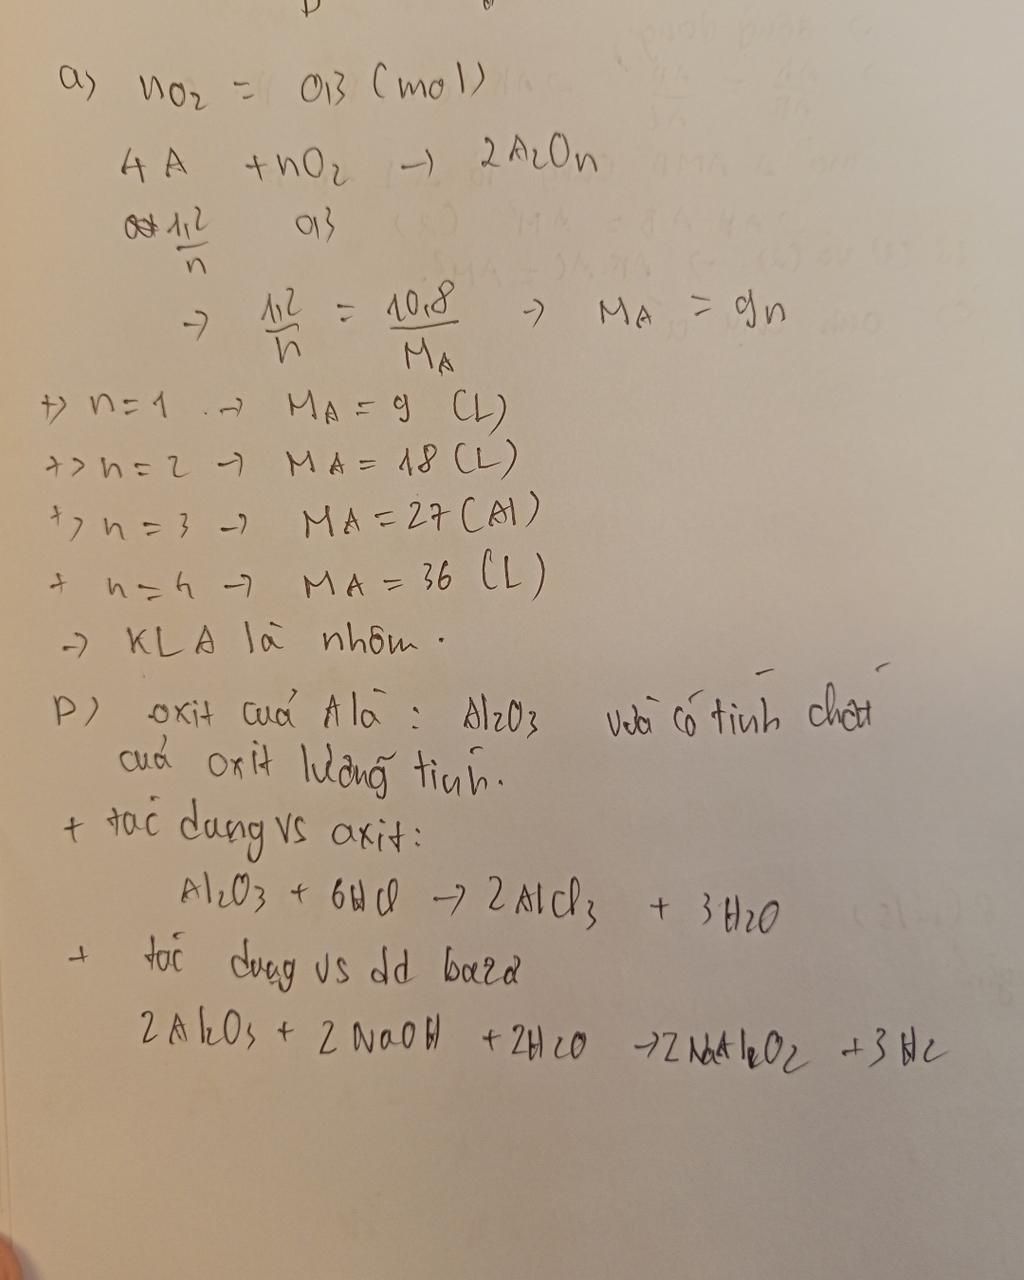 a) nO2 = 0,3 (mol)
4A + nO2 → 2A2On
1,2/n 0,3
→ 1,2/n = 10,8/MA → MA = 9n
+) n=1 → MA = 9 (L)
+) n=2 → MA = 18 (L)
+) n=3 → MA = 27 (Al)
+ n=4 → MA = 36 (L)
→ KLA là nhôm.
b) oxit cuả A là : Al2O3 và có tính chất
cuả oxit lưỡng tính.
+ tác dụng vs axit:
Al2O3 + 6HCl → 2AlCl3 + 3H2O
+ tác dụng vs dd bazơ
2Al2O3 + 2NaOH + 2H2O → 2NaAlO2 + 3H2